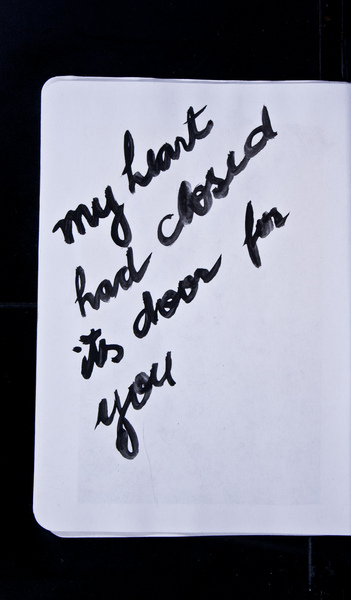 my heart
had closed
its door for
you